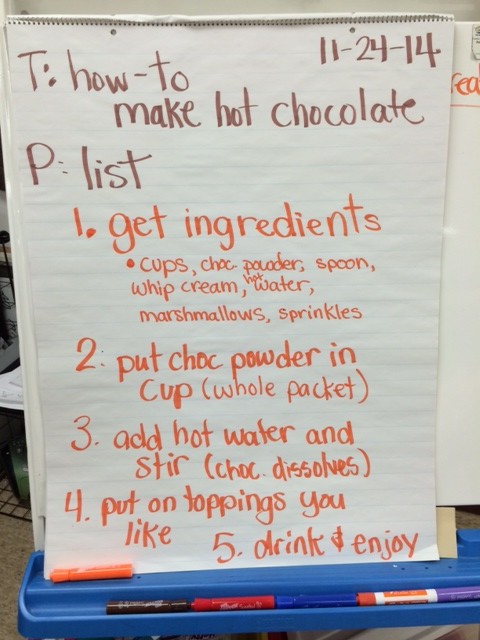 11-24-14
T: how-to
make hot chocolate
P: list
1. get ingredients
• cups, choc. powder, spoon,
whip cream, hot water,
marshmallows, sprinkles
2. put choc powder in
cup (whole packet)
3. add hot water and
stir (choc. dissolves)
4. put on toppings you
like
5. drink & enjoy